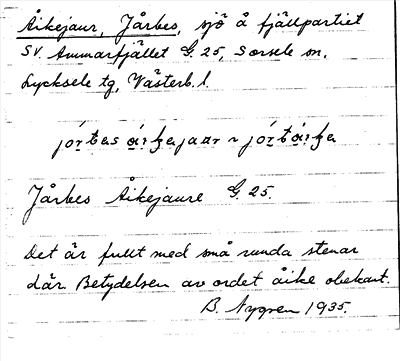 Åikejaur, Jårbes, sjö å fjällpartiet
SV. Ammarfjället G. 25, Sorsele sn.
Lycksele tg, Västerb. l.
Jårbes Åikejaure G. 25.
Det är fullt med små runda stenar
där. Betydelsen av ordet åike obekant.
B. Nygren 1935.